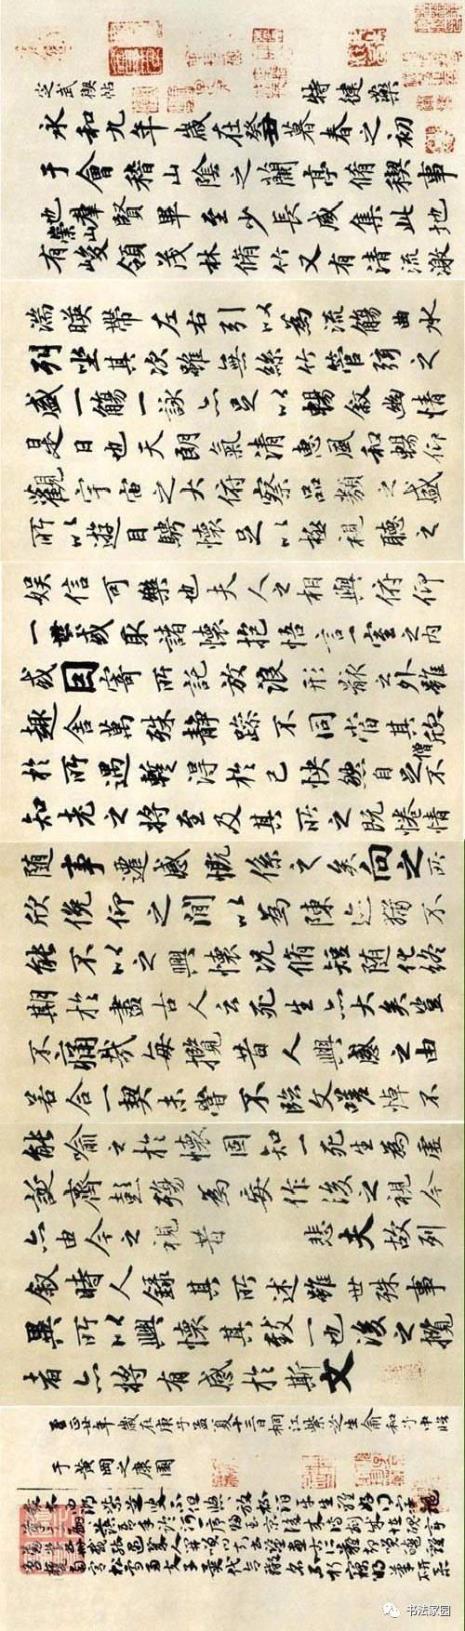 定武禊帖 特健藥
永和九年歲在癸丑暮春之初
于會稽山陰之蘭亭脩稧事
也羣賢畢至少長咸集此地
有崇山峻領茂林脩竹又有清流激
湍暎帶左右引以為流觴曲水
列坐其次雖無絲竹管弦之
盛一觴一詠亦足以暢敘幽情
是日也天朗氣清惠風和暢仰
觀宇宙之大俯察品類之盛
所以遊目騁懷足以極視聽之
娛信可樂也夫人之相與俯仰
一世或取諸懷抱悟言一室之內
或因寄所託放浪形骸之外雖
趣舍萬殊靜躁不同當其欣
於所遇蹔得於己怏然自足僧不
知老之將至及其所之既惓情
隨事遷感慨係之矣向之所
欣俛仰之閒以為陳迹猶不
能不以之興懷況脩短隨化終
期於盡古人云死生亦大矣豈
不痛哉每攬昔人興感之由
若合一契未嘗不臨文嗟悼不
能喻之於懷固知一死生為虛
誕齊彭殤為妄作後之視今
亦由今之視昔 悲夫故列
敘時人錄其所述雖世殊事
異所以興懷其致一也後之攬
者亦將有感於斯文
至正廿年歲在庚子孟夏十三日桐江紫芝生俞和子中臨
于黃岡之康園
书法家园